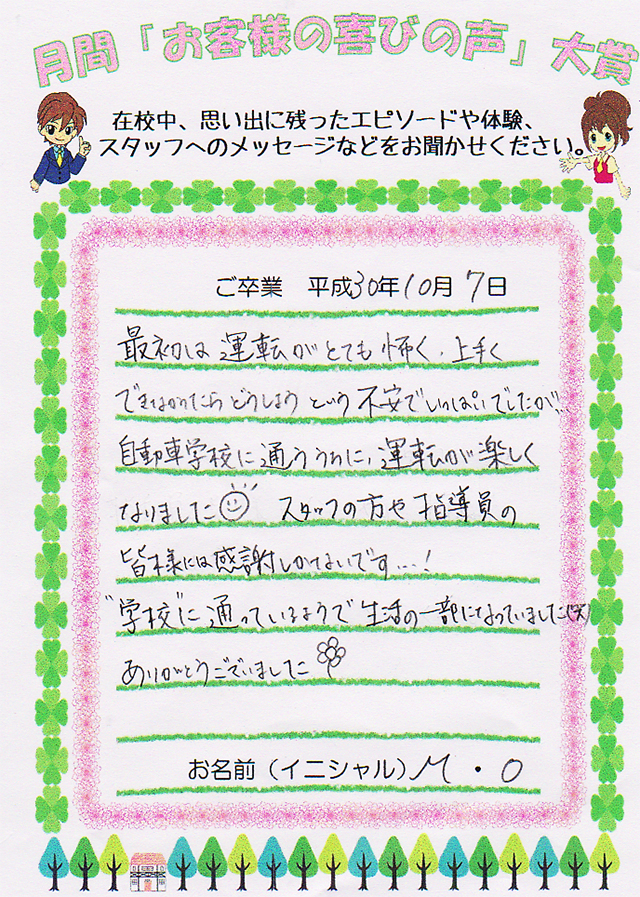 月間「お客様の喜びの声」大賞
在校中、思い出に残ったエピソードや体験、
スタッフへのメッセージなどをお聞かせください。
ご卒業　平成30年10月7日
最初は運転がとても怖く、上手く
できなかったらどうしようという不安でいっぱいでしたが…
自動車学校に通ううちに、運転が楽しく
なりました スタッフの方や指導員の
皆様には感謝しかないです…!
"学校"に通っているようで生活の一部になっていました(笑)
ありがとうございました
お名前（イニシャル）M・O